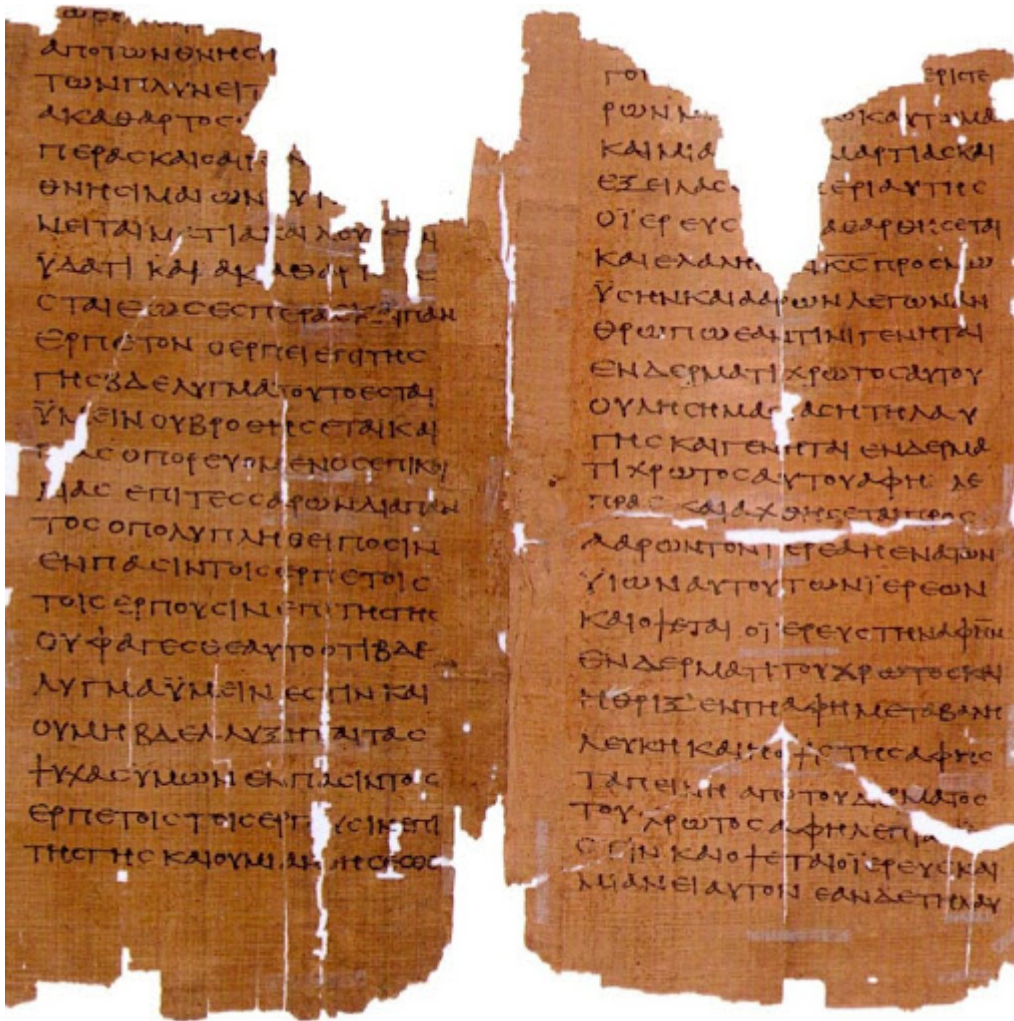 ΑΠΟΤΩΝΘΝΗΣΙ
ΤΩΝΠΛΥΝΕΙΤ
ΑΚΑΘΑΡΤΟΣ
ΠΕΡΑΣΚΑΙΟΑΙΡ
ΘΝΗΣΙΜΑΙΩΝ
ΝΕΙΤΑΙΜΑΤΙΑΚΑΙΛΟΥ
ΫΔΑΤΙ ΚΑΙ ΑΚΑΘΑΡΤ Ε
ΣΤΑΙΕΩΣΕΣΠΕΡΑΣΚΑΙΠΑΝ
ΕΡΠΕΤΟΝ ΟΕΡΠΕΙΕΠΙΤΗΣ
ΓΗΣΒΔΕΛΥΓΜΑΤΟΥΤΟΕΣΤΑΙ
ΫΜΕΙΝΟΥΒΡΩΘΗΣΕΤΑΙΚΑΙ
ΠΑΣΟΠΟΡΕΥΟΜΕΝΟΣΕΠΙΚΟΙ
ΛΙΑΣ ΕΠΙΤΕΣΣΑΡΩΝΔΙΑΠΑΝ
ΤΟΣΟΠΟΛΥΠΛΗΘΕΙΠΟΣΙΝ
ΕΝΠΑΣΙΝΤΟΙΣΕΡΠΕΤΟΙΣ
ΤΟΙΣΕΡΠΟΥΣΙΝΕΠΙΤΗΣΓΗΣ
ΟΥΦΑΓΕΣΘΕΑΥΤΟΟΤΙΒΔΕ
ΛΥΓΜΑΫΜΕΙΝΕΣΤΙΝΚΑΙ
ΟΥΜΗΒΔΕΛΛΥΞΗΤΑΙΤΑΣ
ΨΥΧΑΣΥΜΩΝΕΝΠΑΣΙΝΤΟΙΣ
ΕΡΠΕΤΟΙΣΤΟΙΣΕΡΠΟΥΣΙΝΕΠΙ
ΤΗΣΓΗΣΚΑΙΟΥΜΙΑΝΘΗΣΕΣΘΕ
ΓΟΥ ΕΡΙΣΤΕ
ΡΩΝ ΚΑΥΤΩΜΑ
ΚΑΙΜΙΑ ΜΑΡΤΙΑΣΚΑΙ
ΕΞΕΙΛΑΣ ΕΡΙΑΥΤΗΣ
ΟΪΕΡΕΥΣ ΚΑΘΑΡΘΗΣΕΤΑΙ
ΚΑΙΕΛΑΛΗ ΚΣΠΡΟΣΜΩ
ΫΣΗΝΚΑΙΑΑΡΩΝΛΕΓΩΝΑΝ
ΘΡΩΠΩΕΑΝΤΙΝΙΓΕΝΗΤΑΙ
ΕΝΔΕΡΜΑΤΙΧΡΩΤΟΣΑΥΤΟΥ
ΟΥΛΗΣΗΜΑΣΙΑΣΗΤΗΛΑΥ
ΓΗΣΚΑΙΓΕΝΗΤΑΙΕΝΔΕΡΜΑ
ΤΙΧΡΩΤΟΣΑΥΤΟΥΑΦΗ ΛΕ
ΠΡΑΣ ΚΑΙΑΧΘΗΣΕΤΑΙΠΡΟΣ
ΑΑΡΩΝΤΟΝΪΕΡΕΑΗΕΝΑΤΩΝ
ΫΙΩΝΑΥΤΟΥΤΩΝΪΕΡΕΩΝ
ΚΑΙΟΨΕΤΑΙΟΪΕΡΕΥΣΤΗΝΑΦΗΝ
ΕΝΔΕΡΜΑΤΙΤΟΥΧΡΩΤΟΣΚΑΙ
ΗΘΡΙΞΕΝΤΗΑΦΗΜΕΤΑΒΑΛΗ
ΛΕΥΚΗΚΑΙΗΟΨΙΣΤΗΣΑΦΗΣ
ΤΑΠΕΙΝΗΑΠΟΤΟΥΔΕΡΜΑΤΟΣ
ΤΟΥΧΡΩΤΟΣΑΦΗΛΕΠΡΑ
ΣΤΙΝΚΑΙΟΨΕΤΑΙΟΪΕΡΕΥΣΚΑΙ
ΜΙΑΝΕΙΑΥΤΟΝΕΑΝΔΕΤΗΛΑΥ